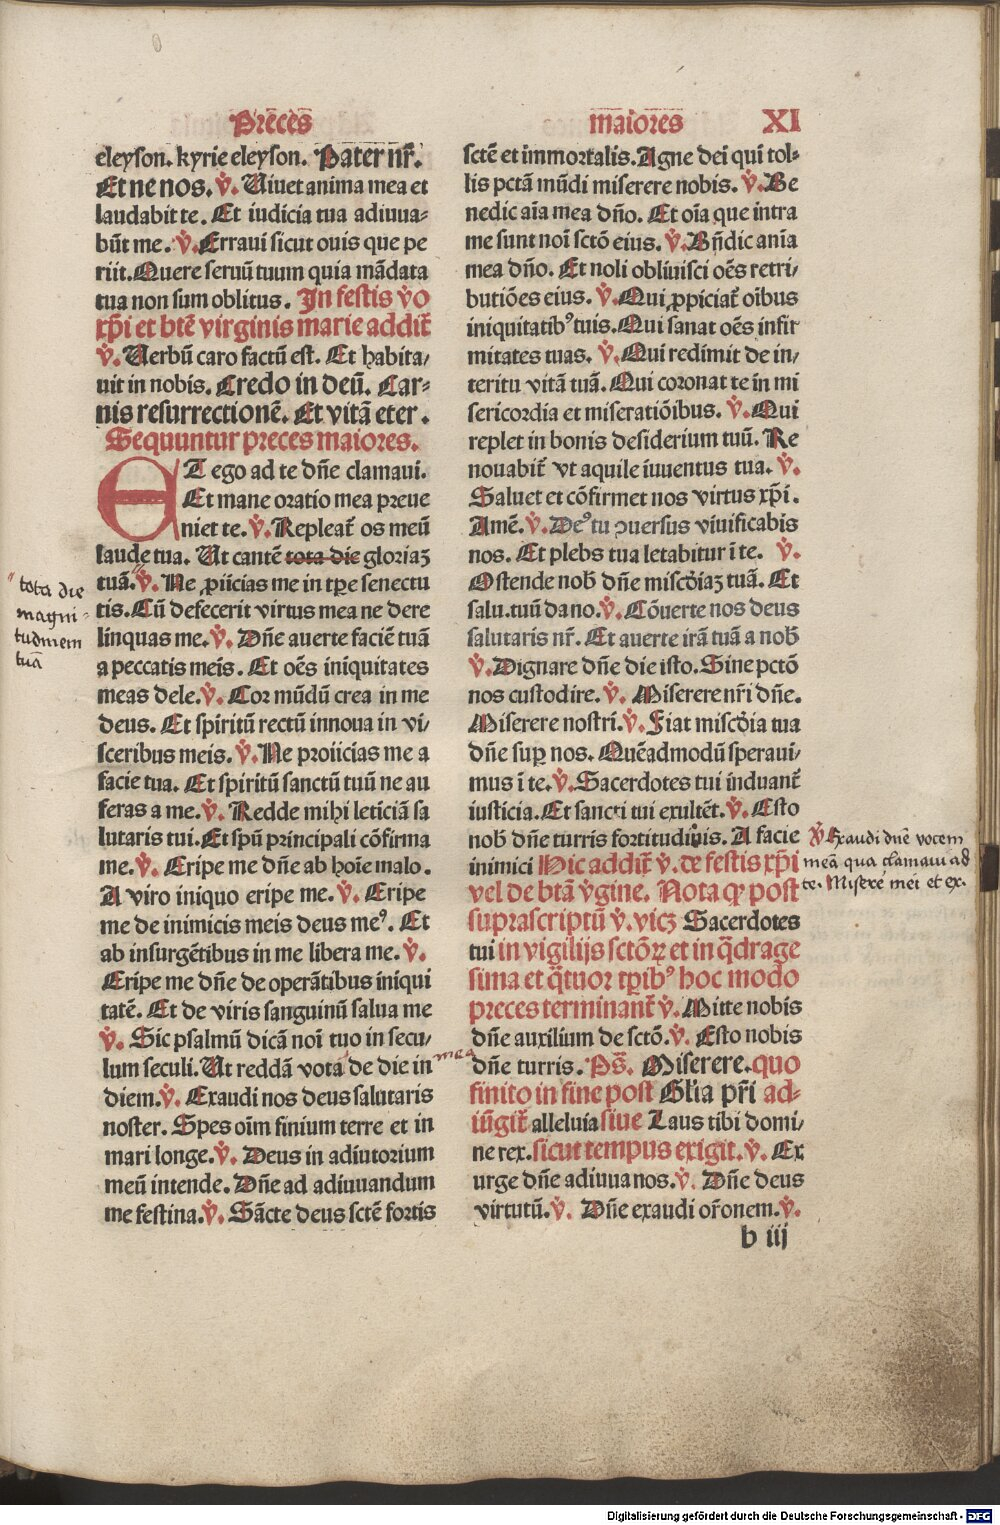 Preces maiores XI
eleyson. kyrie eleyson. Pater nr̄.
Et ne nos. v̊. Uiuet anima mea et
laudabit te. Et iudicia tua adiuua⸗
bũt me. v̊. Erraui sicut ouis que pe
riit. Quere seruũ tuum quia mãdata
tua non sum oblitus. In festis v̊o
xp̄i et btẽ virginis marie addit̃
v̊. Uerbũ caro factũ est. Et habita/
uit in nobis. Credo in deũ. Car⸗
nis resurrectionẽ. Et vitã eter.
Sequuntur preces maiores.
ET ego ad te dñe clamaui.
Et mane oratio mea preue
niet te. v̊. Repleat̃ os meũ
laude tua. Ut cantẽ tota die gloriaꝫ
tuã. v̊. Ne ꝓiicias me in tp̱e senectu
tis. Cũ defecerit virtus mea ne dere
linquas me. v̊. Dñe auerte faciẽ tuã
a peccatis meis. Et oẽs iniquitates
meas dele. v̊. Cor mũdũ crea in me
deus. Et spiritũ rectũ innoua in vi⸗
sceribus meis. v̊. Ne proiicias me a
facie tua. Et spiritũ sanctũ tuũ ne au
feras a me. v̊. Redde mihi leticiã sa
lutaris tui. Et spũ principali cõfirma
me. v̊. Eripe me dñe ab hoĩe malo.
A viro iniquo eripe me. v̊. Eripe
me de inimicis meis deus meꝰ. Et
ab insurgẽtibus in me libera me. v̊.
Eripe me dñe de operãtibus iniqui
tatẽ. Et de viris sanguinũ salua me
v̊. Sic psalmũ dicã noĩ tuo in secu/
lum seculi. Ut reddã vota de die in
diem. v̊. Exaudi nos deus salutaris
noster. Spes oĩm finium terre et in
mari longe. v̊. Deus in adiutorium
meũ intende. Dñe ad adiuuandum
me festina. v̊. Sãcte deus sctẽ fortis
tota die
magni⸗
tudinem
tuã
mea
sctẽ et immortalis. Agne dei qui tol⸗
lis pctã mũdi miserere nobis. v̊. Be
nedic aĩa mea dño. Et oĩa que intra
me sunt noĩ sctõ eius. v̊. Bñdic anĩa
mea dño. Et noli obliuisci oẽs retri/
butiões eius. v̊. Qui ꝓpiciat̃ oĩbus
iniquitatibꝰ tuis. Qui sanat oẽs infir
mitates tuas. v̊. Qui redimit de in/
teritu vitã tuã. Qui coronat te in mi
sericordia et miseratiõibus. v̊. Qui
replet in bonis desiderium tuũ. Re
nouabit̃ vt aquile iuuentus tua. v̊.
Saluet et cõfirmet nos virtus xp̄i.
Amẽ. v̊. Deꝰ tu ↄuersus viuificabis
nos. Et plebs tua letabitur ĩ te. v̊.
Ostende nob̃ dñe misc̃diaꝫ tuã. Et
salu. tuũ da no. v̊. Cõuerte nos deus
salutaris nr̄. Et auerte irã tuã a nob̃
v̊. Dignare dñe die isto. Sine pctõ
nos custodire. v̊. Miserere nr̄i dñe.
Miserere nostri. v̊. Fiat misc̃dia tua
dñe suꝑ nos. Quẽadmodũ speraui/
mus ĩ te. v̊. Sacerdotes tui induant̃
iusticia. Et sancti tui exultẽt. v̊. Esto
nob̃ dñe turris fortitudinis. A facie
inimici Hic addit̃ v̊. de festis xp̄i
vel de btã v̊gine. Nota ꝙ post
suprascriptũ v̊. vicꝫ Sacerdotes
tui in vigilijs sctõꝝ et in q̃drage
sima et q̃tuor tp̱ibꝰ hoc modo
preces terminant̃ v̊. Mitte nobis
dñe auxilium de sctõ. v̊. Esto nobis
dñe turris. Ps̃. Miserere. quo
finito in fine post Gl̃ia pr̄i ad⸗
iũgit̃ alleluia siue Laus tibi domi/
ne rex. sicut tempus exigit. v̊. Ex
urge dñe adiuua nos. v̊. Dñe deus
virtutũ. v̊. Dñe exaudi or̃onem. v̊.
b iij
v̊ Exaudi dñe vocem
meã qua clamaui ad
te. Miserẽ mei et ex.
Digitalisierung gefördert durch die Deutsche Forschungsgemeinschaft - DFG